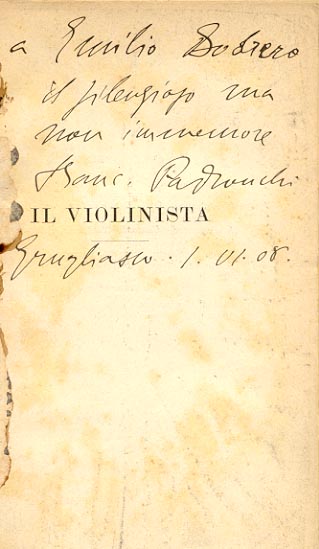 a Emilio Bodrero
il silenzioso ma
non immemore
Franc. Pastonchi
IL VIOLINISTA
Grugliasco . 1. VI. 08.